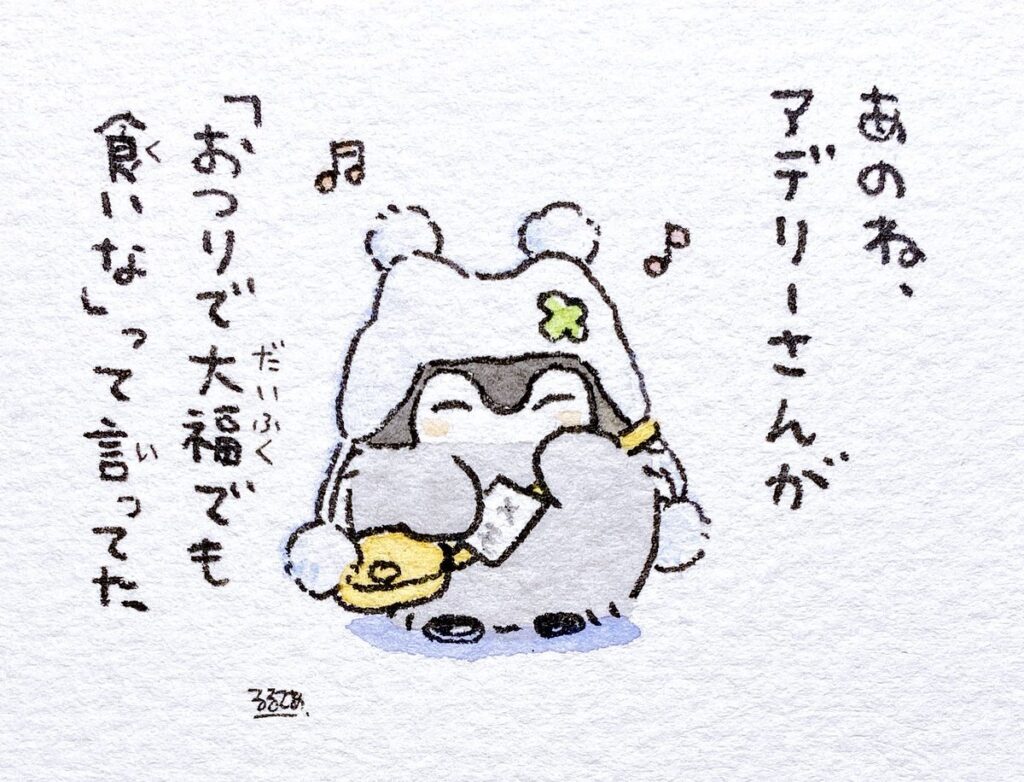 あのね、
アデリーさんが
「おつりで大福でも
だいふく
食いな」って言ってた、
く
い
るるてあ